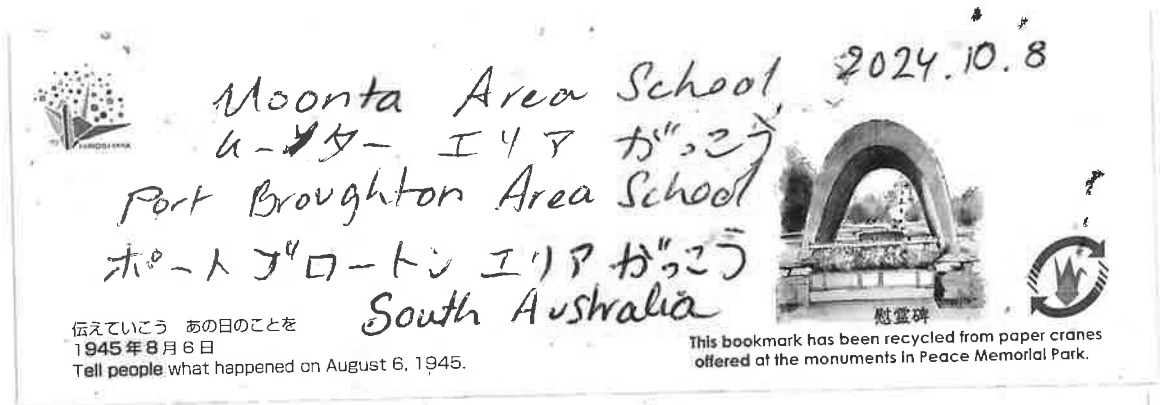 2024.10.8
Moonta Area School
ムーンター エリア がっこう
Port Broughton Area School
ポート ブロートン エリア がっこう
South Australia
HIROSHIMA
伝えていこう あの日のことを
1945年8月6日
Tell people what happened on August 6, 1945.
慰霊碑
This bookmark has been recycled from paper cranes
offered at the monuments in Peace Memorial Park.